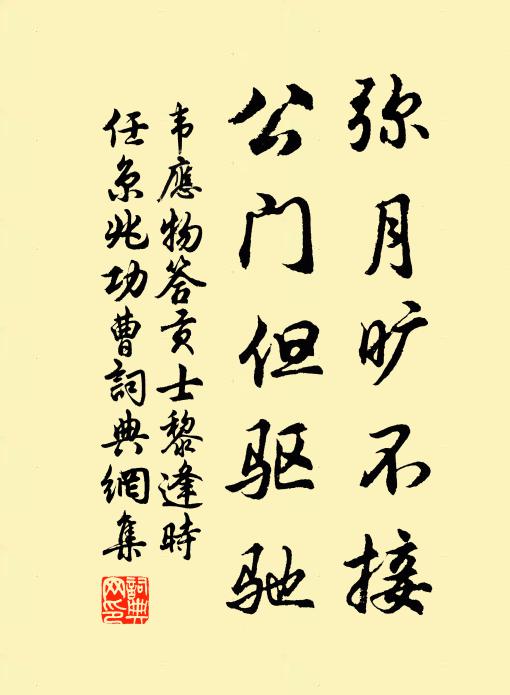 弥月旷不接
公门但驱驰
韦應物答贡士黎逢時
任京兆功曹詞典網集
詞典
网印